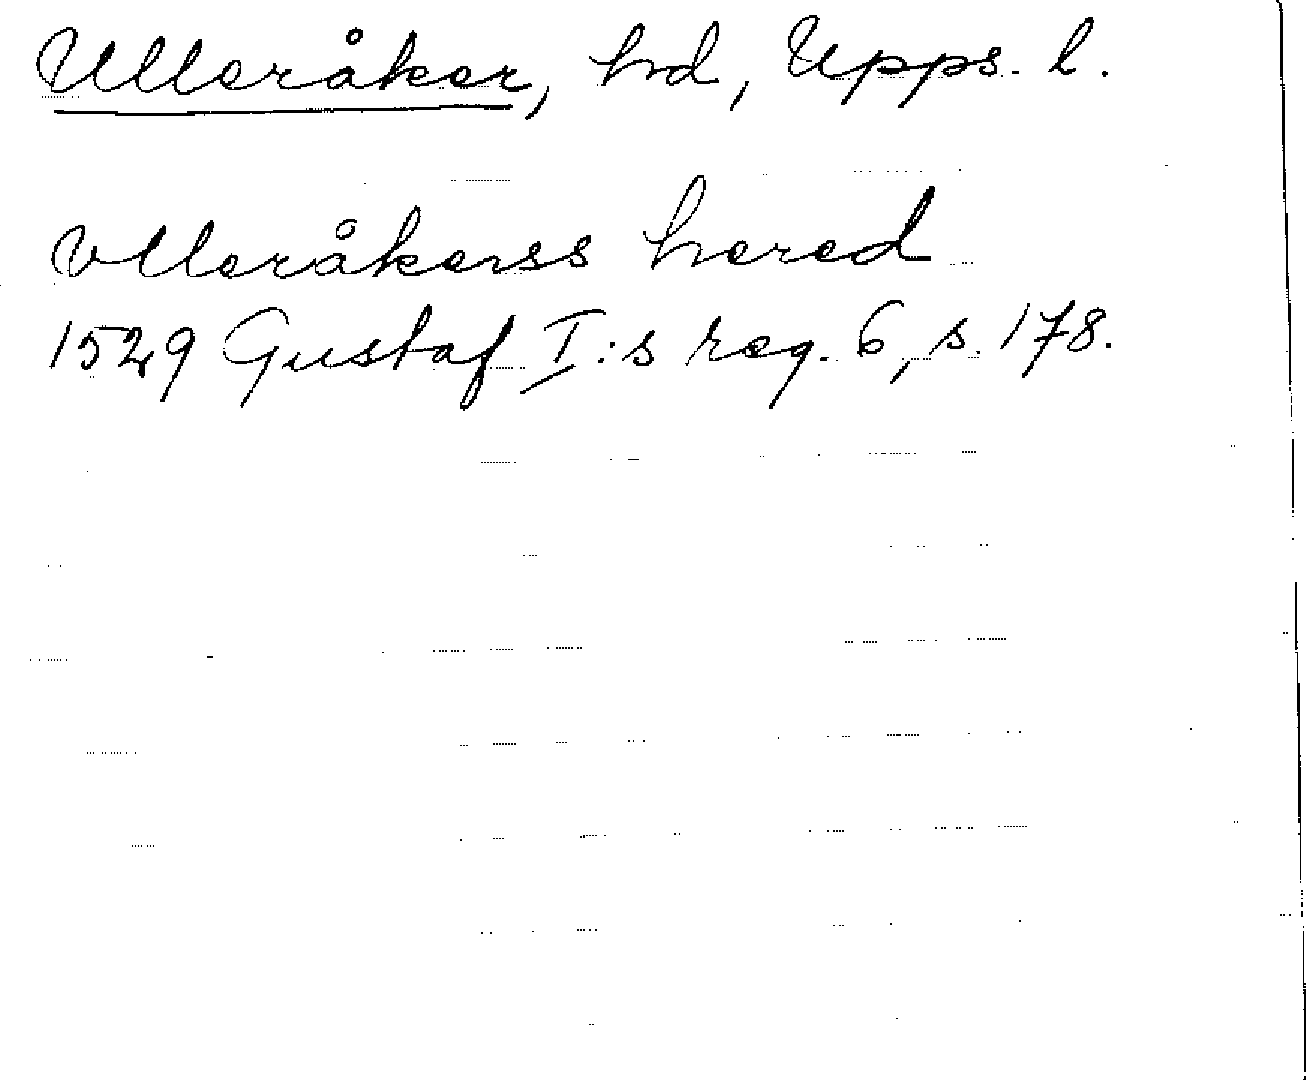 Ulleråker, hd, Upps. l.
Vlleråkerss hered
1529 Gustaf I:s reg. 6, s. 178.